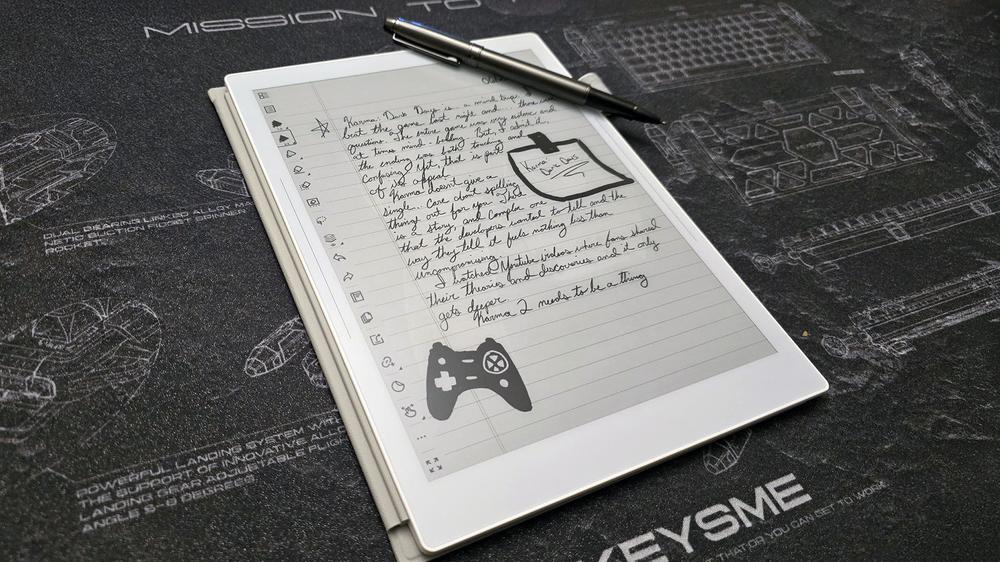 MISSION TO
Karma: Dark Days is a mind trip. I
beat the game last night and I have
questions. The entire game was very surreal and
at times mind-bending. But, I admit it,
the ending was both touching and
confusing. Yet, that is part
of its appeal.
Karma doesn't give a
single... care about spelling
things out for you. This
is a story, and complex one
that the developers wanted to tell and the
way they tell it feels nothing less than
uncompromising.
I watched YouTube videos where fans shared
their theories and discoveries and it only
gets deeper.
Karma 2 needs to be a thing
Karma
Dark Days
DUAL BEARING LINKED ALLOY MA
NETIC SUCTION FIDGET SPINNER
ROCKETS
POWERFUL LANDING SYSTEM WITH
THE SUPPORT OF INNOVATIVE ALLO
LANDING GEAR ADJUSTABLE FLIGH
ANGLE 5-8 DEGREES
KEYSME
THAT DO YOU CAN GET TO WORK